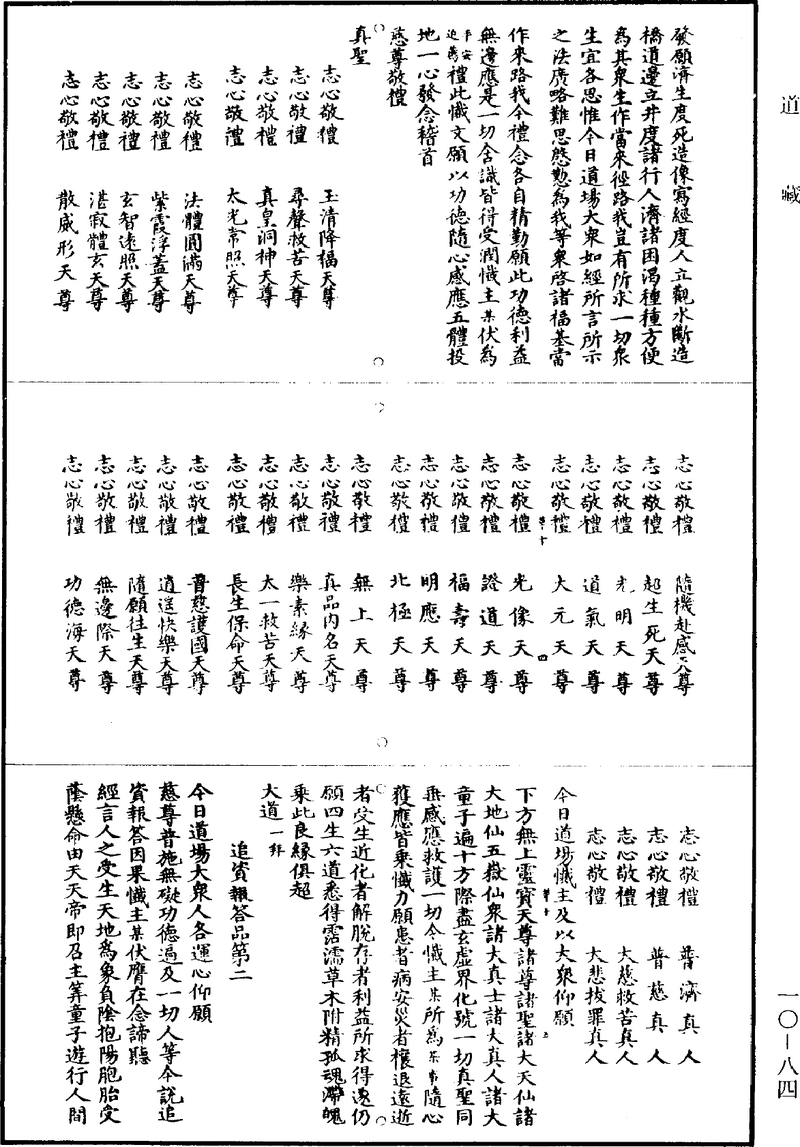 道藏
發願濟生度死造像寫經度人立觀水斷造
橋道邊立井度諸行人濟諸困渴種種方便
爲其衆生作當來徑路我豈有所求一切衆
生宜各思惟今日道場大衆如經所言所示
之法廣略難思慇懃爲我等衆啓諸福基當
作來路我今禮念各自精勤願此功德利益
無邊應是一切含識皆得受潤懺主某伏爲
平安追薦禮此懺文願以功德隨心感應五體投
地一心發念稽首
慈尊敬禮
真聖
志心敬禮 玉清降福天尊
志心敬禮 尋聲救苦天尊
志心敬禮 真皇洞神天尊
志心敬禮 太光常照天尊
志心敬禮 法體圓滿天尊
志心敬禮 紫霞浮蓋天尊
志心敬禮 玄智遠照天尊
志心敬禮 湛寂體玄天尊
志心敬禮 散威形天尊
志心敬禮 隨機赴感天尊
志心敬禮 起生死天尊
志心敬禮 光明天尊
志心敬禮 道氣天尊
志心敬禮 大元天尊
四
志心敬禮 光像天尊
志心敬禮 證道天尊
志心敬禮 福壽天尊
志心敬禮 明應天尊
志心敬禮 北極天尊
志心敬禮 無上天尊
志心敬禮 真品內名天尊
志心敬禮 樂素緣天尊
志心敬禮 太一救苦天尊
志心敬禮 長生保命天尊
志心敬禮 普慈護國天尊
志心敬禮 逍遥快樂天尊
志心敬禮 隨願往生天尊
志心敬禮 無邊際天尊
志心敬禮 功德海天尊
志心敬禮 普濟真人
志心敬禮 普慈真人
志心敬禮 大慈救苦真人
志心敬禮 大悲拔罪真人
今日道場懺主及以大衆仰願
下方無上靈寶天尊諸尊諸聖諸大天仙諸
大地仙五嶽仙衆諸大真士諸大真人諸大
童子遍十方際盡玄虛界化號一切真聖同
垂感應救護一切令懺主某所爲某事隨心
獲應皆乘懺力願患者病安災者禳退遠逝
者受生近化者解脫存者利益所求得遂仍
願四生六道悉得霑濡草木附精孤魂滯魄
乘此良緣俱超
大道一拜
追資報答品第二
今日道場大衆人各運心仰願
慈尊普施無礙功德遍及一切人等今說追
資報答因果懺主某伏膺在念諦聽
經言人之受生天地爲象負陰抱陽胞胎受
蔭懸命由天天帝即召主筭童子遊行人間
一〇—八四